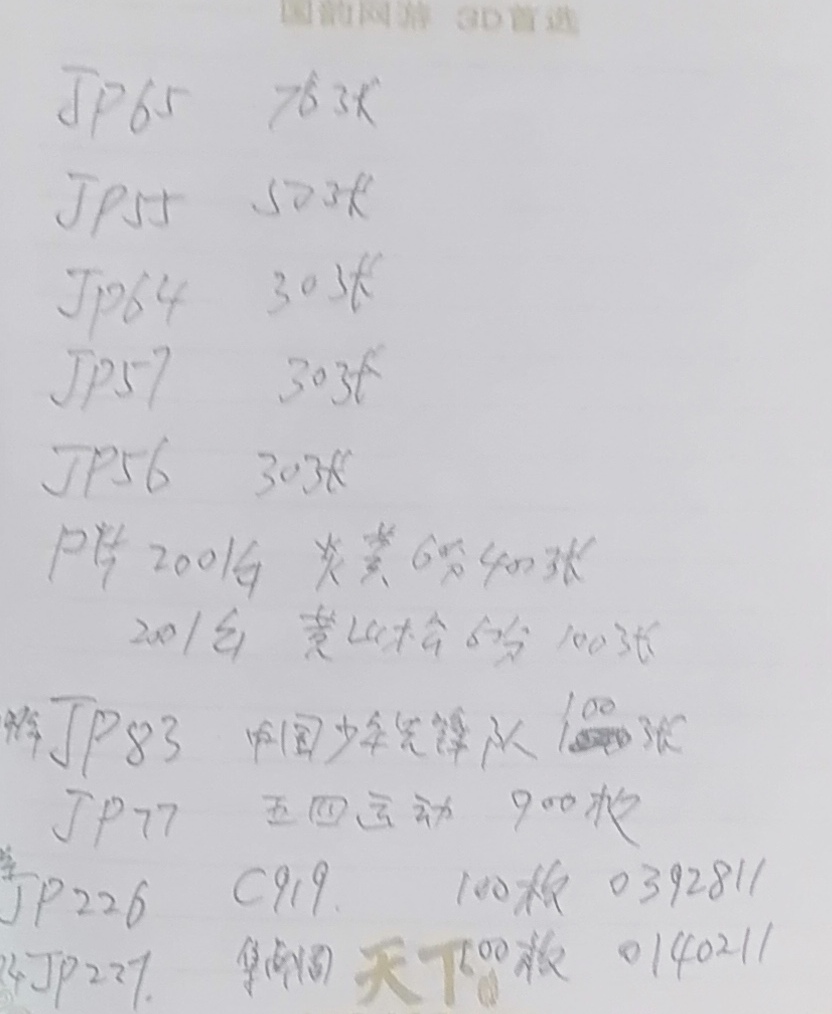 国韵网游 3D首选
JP65 76张
JP55 50张
JP64 30张
JP57 30张
JP56 30张
P 2001年 炎黄 60分 400张
2001年 黄山松 60分 100张
JP83 中国少年先锋队 100张
JP77 五四运动 900枚
JP226 C919. 100枚 0392811
JP227. 集邮周 100枚 0140211
天下